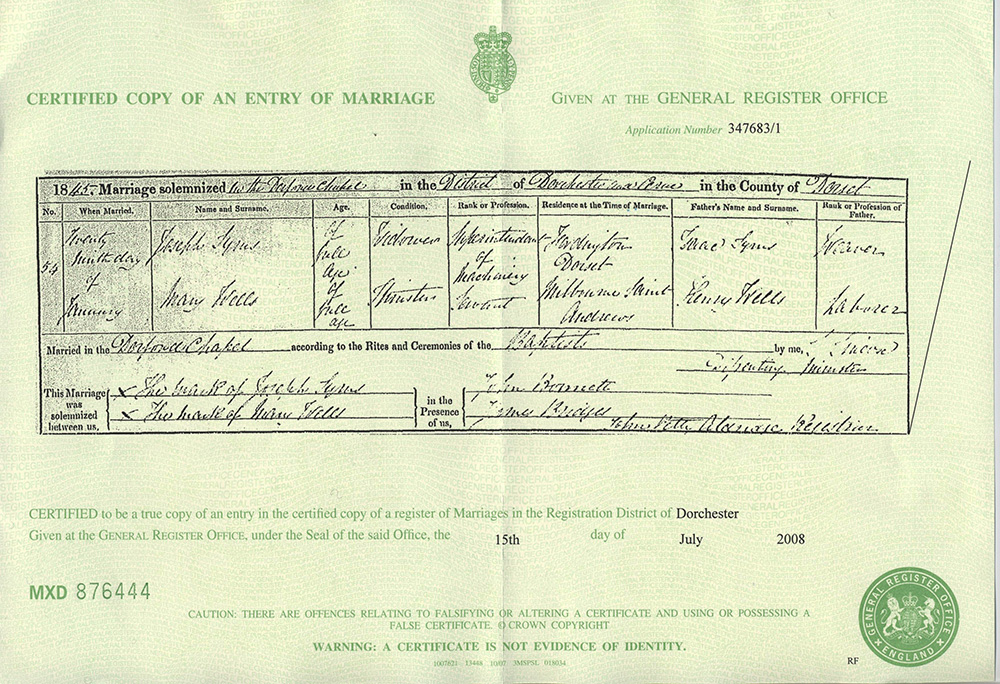 CERTIFIED COPY OF AN ENTRY OF MARRIAGE
GIVEN AT THE GENERAL REGISTER OFFICE
Application Number 347683/1
1845 Marriage solemnized in the Dorford Chapel in the District of Dorchester and Cerne in the County of Dorset
No. When Married. Name and Surname. Age. Condition. Rank or Profession. Residence at the Time of Marriage. Father's Name and Surname. Rank or Profession of Father.
54 Twenty Ninth day of January Joseph Syms of full age Widower Superintendant of Machinery Fordington Dorset Isaac Syms Weaver
Mary Wells of full age Spinster Servant Milbourne Saint Andrews Henry Wells Laborer
Married in the Dorford Chapel according to the Rites and Ceremonies of the Baptists by me,
Minister
This Marriage was solemnized between us, X The mark of Joseph Syms
X The mark of Mary Wells
in the Presence of us, John
James Bridges
John Registrar
CERTIFIED to be a true copy of an entry in the certified copy of a register of Marriages in the Registration District of Dorchester
Given at the GENERAL REGISTER OFFICE, under the Seal of the said Office, the 15th day of July 2008
MXD 876444
CAUTION: THERE ARE OFFENCES RELATING TO FALSIFYING OR ALTERING A CERTIFICATE AND USING OR POSSESSING A
FALSE CERTIFICATE. © CROWN COPYRIGHT
WARNING: A CERTIFICATE IS NOT EVIDENCE OF IDENTITY.
1007821 13448 10/07 3MSPSL 018034
RF
GENERAL REGISTER OFFICE
ENGLAND